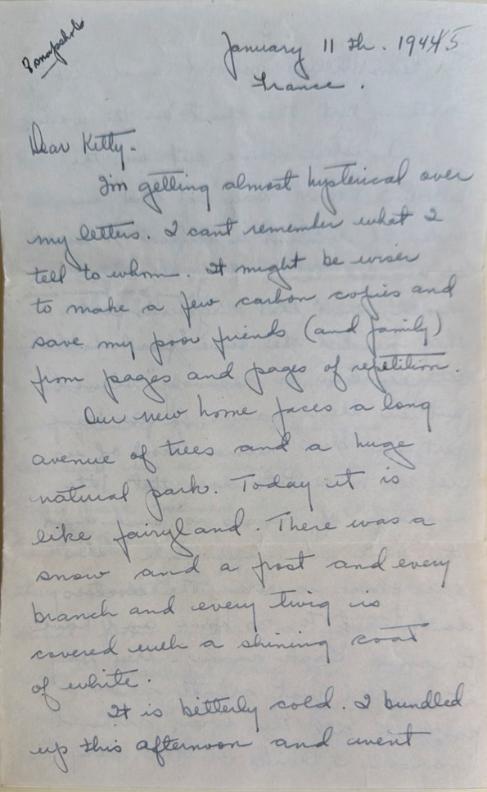 3 snapshots
January 11 th. 19445
France.
Dear Kitty-
I'm getting almost hysterical over
my letters. I cant remember what I
tell to whom. It might be wiser
to make a few carbon copies and
save my poor friends (and family)
from pages and pages of repetition.
Our new home faces a long
avenue of trees and a huge
natural park. Today it is
like fairyland. There was a
snow and a frost and every
branch and every twig is
covered with a shining coat
of white.
It is bitterly cold. I bundled
up this afternoon and went